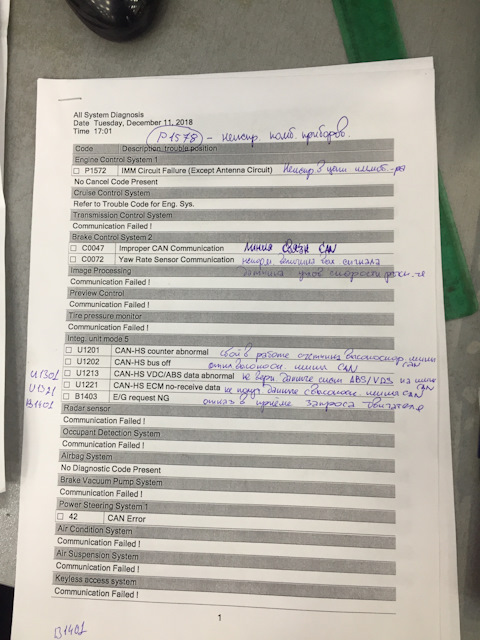 All System Diagnosis
Date Tuesday, December 11, 2018
Time 17:01
P1578 - неиспр. комб. приборов.
Code Description, trouble position
Engine Control System 1
P1572 IMM Circuit Failure (Except Antenna Circuit) Неиспр в цепи
No Cancel Code Present
Cruise Control System
Refer to Trouble Code for Eng. Sys.
Transmission Control System
Communication Failed !
Brake Control System 2
C0047 Improper CAN Communication линия связи CAN
C0072 Yaw Rate Sensor Communication вх сигнала
Image Processing датчика углов скорости
Communication Failed !
Preview Control
Communication Failed !
Tire pressure monitor
Communication Failed !
Integ. unit mode 5
U1201 CAN-HS counter abnormal сбой в работе счетчика линии
U1202 CAN-HS bus off линии CAN
U1301 U1213 CAN-HS VDC/ABS data abnormal не верн данные сист ABS/VDS
U1321 U1221 CAN-HS ECM no-receive data данные CAN
B1401 B1403 E/G request NG отказ в приёме запроса двигателя
Radar sensor
Communication Failed !
Occupant Detection System
Communication Failed !
Airbag System
No Diagnostic Code Present
Brake Vacuum Pump System
Communication Failed !
Power Steering System 1
42 CAN Error
Air Condition System
Communication Failed !
Air Suspension System
Communication Failed !
Keyless access system
Communication Failed !
1
B1401